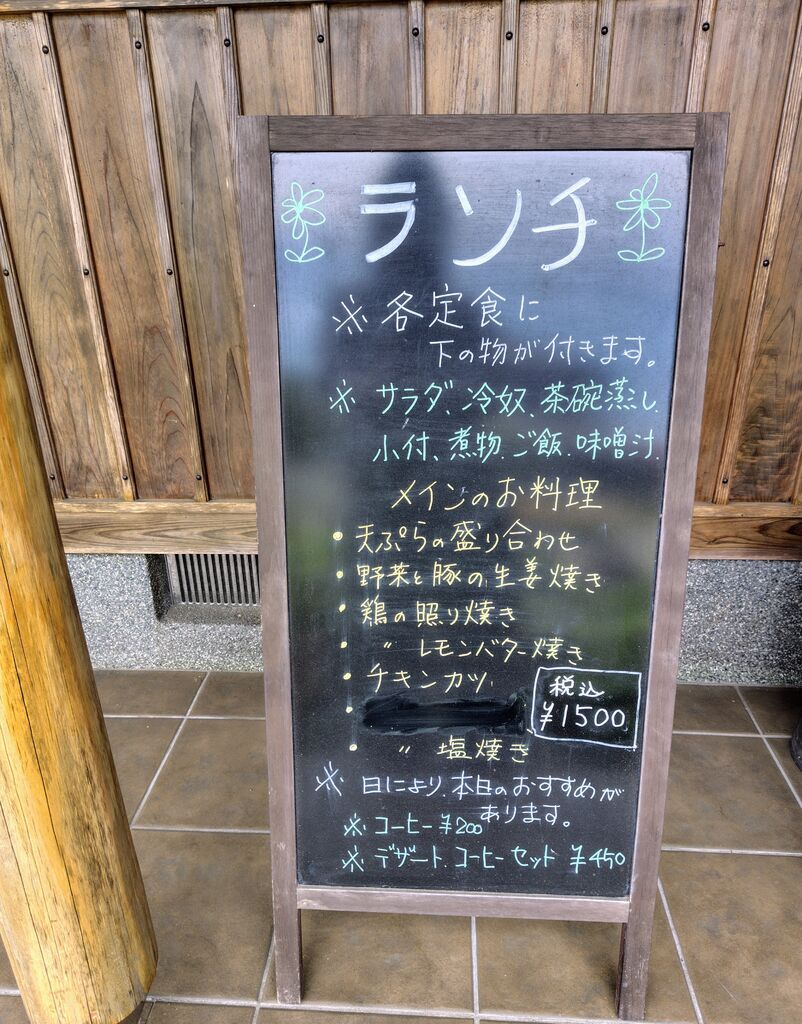 ランチ
※ 各定食に
下の物が付きます。
※ サラダ、冷奴、茶碗蒸し、
小付、煮物、ご飯、味噌汁
メインのお料理
・天ぷらの盛り合わせ
・野菜と豚の生姜焼き
・鶏の照り焼き
・ 〃 レモンバター焼き
・チキンカツ
税込
¥1500
・
・ 〃 塩焼き
※ 日により、本日のおすすめが
あります。
※ コーヒー ¥200
※ デザート、コーヒーセット ¥450